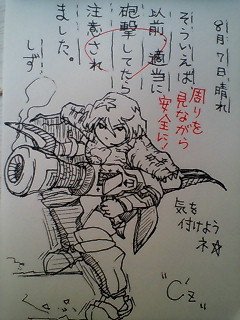 8月7日、晴れ
そういえば
以前、適当に
砲撃してたら
注意され
ました。
しず
周りを
見ながら
安全に!
気を
付けよう
ネ☆
"C'z"